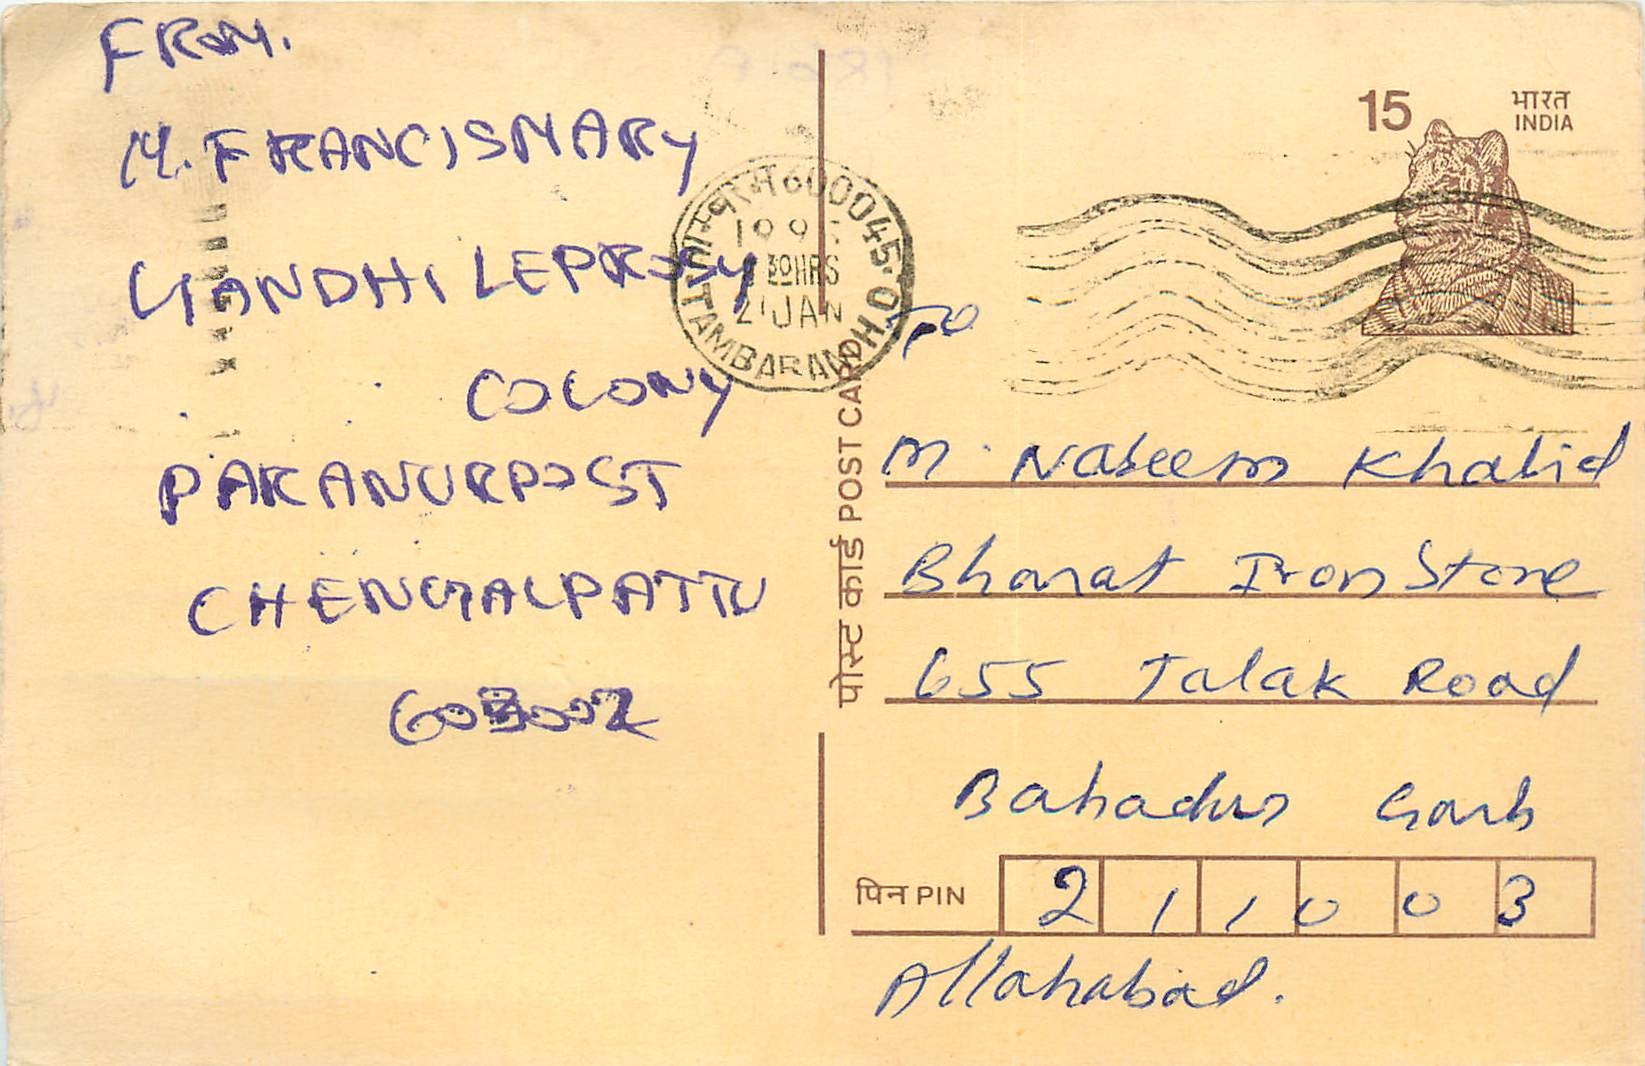 FROM.
M. FRANCISMARY
GANDHI LEPROSY
COLONY
PARANURPOST
CHENGALPATTU
15
भारत
INDIA
600045
30HRS
21 JAN
TAMBARAM H.O.
पोस्ट कार्ड POST CARD
To
M. Naseem Khalid
Bharat Iron Store
655 Talak Road
Bahadur Garh
पिन PIN 211003
Allahabad.